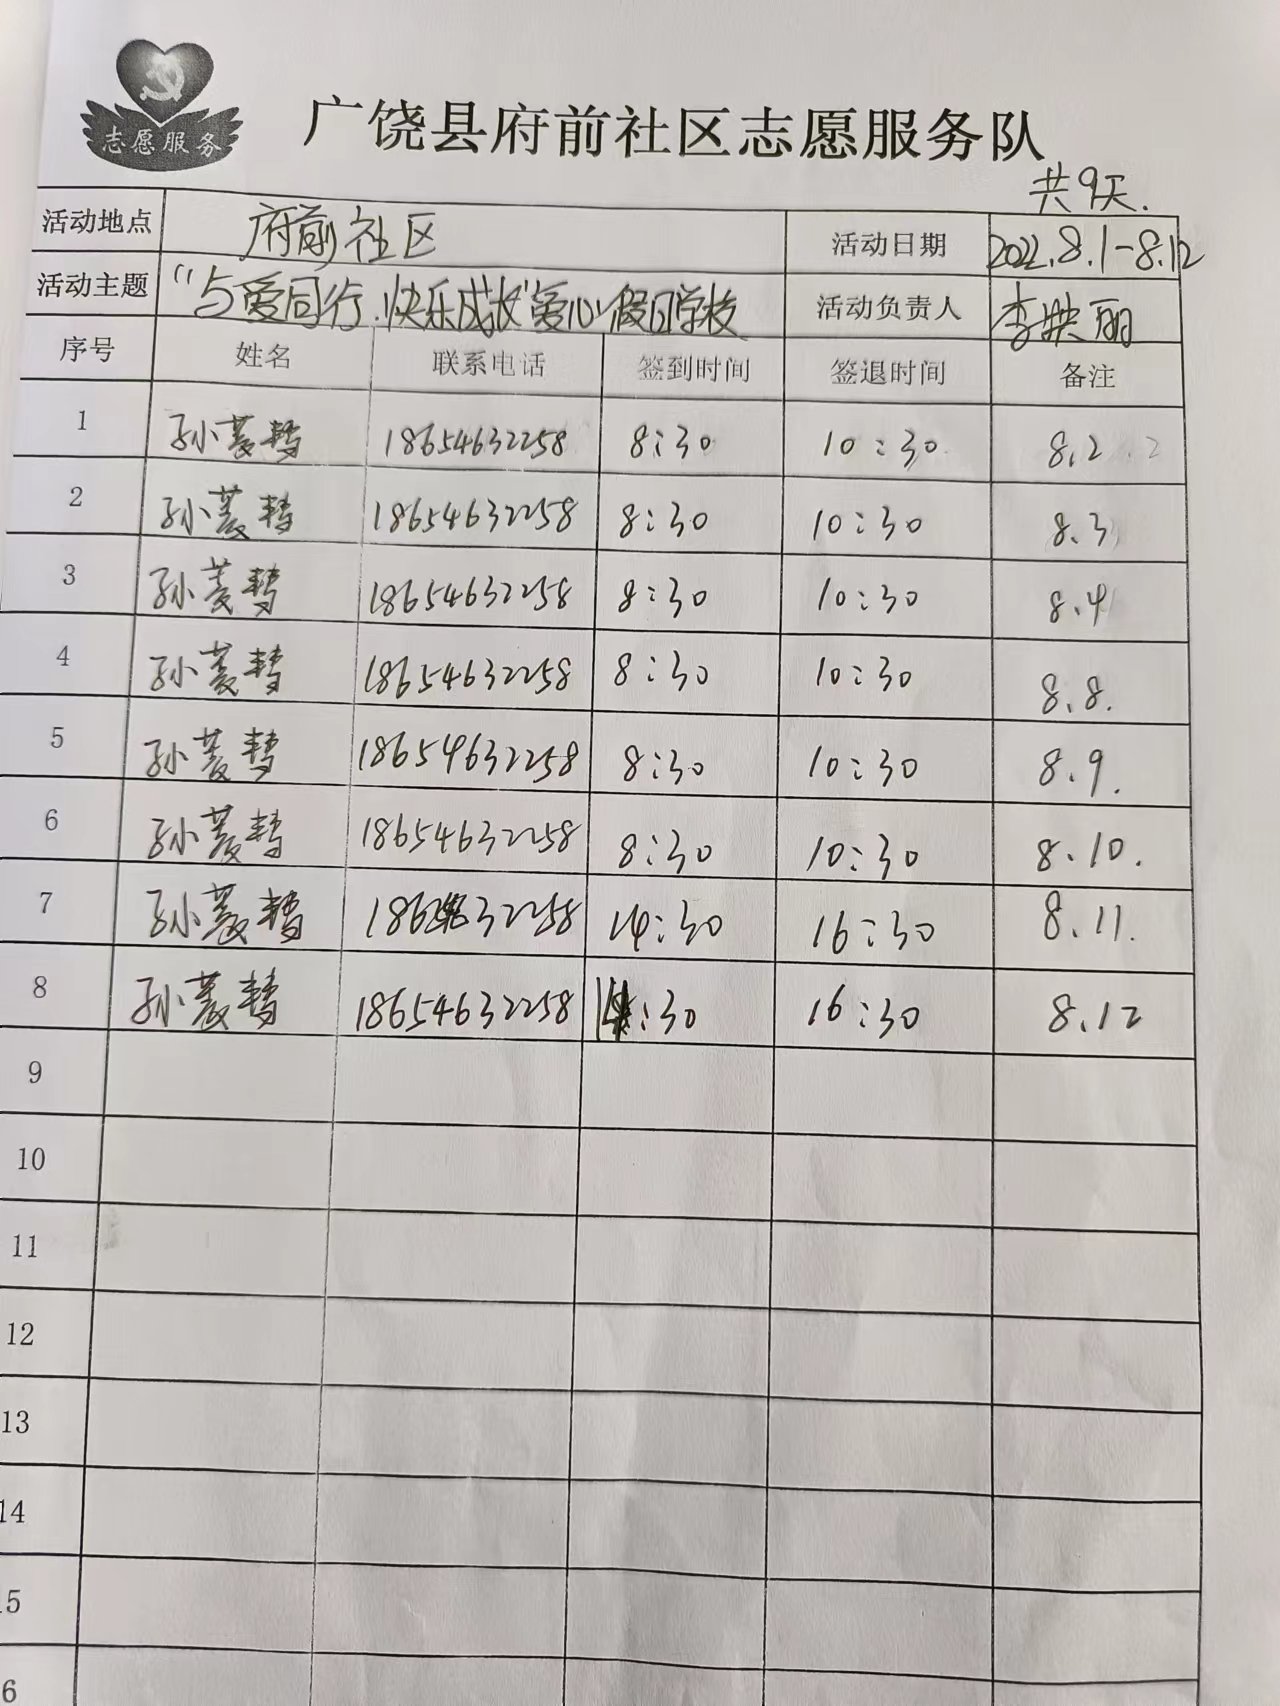 志愿服务
广饶县府前社区志愿服务队
共9天.
活动地点 府前社区 活动日期 2022.8.1-8.12
活动主题 "与爱同行.快乐成长"爱心假日学校 活动负责人 李映丽
序号 姓名 联系电话 签到时间 签退时间 备注
1 孙菱 18654632258 8:30 10:30 8.2
2 孙菱 18654632258 8:30 10:30 8.3
3 孙菱 18654632258 8:30 10:30 8.4
4 孙菱 18654632258 8:30 10:30 8.8.
5 孙菱 18654632258 8:30 10:30 8.9.
6 孙菱 18654632258 8:30 10:30 8.10.
7 孙菱 18654632258 14:30 16:30 8.11.
8 孙菱 18654632258 14:30 16:30 8.12
9
10
11
12
13
14
15
6